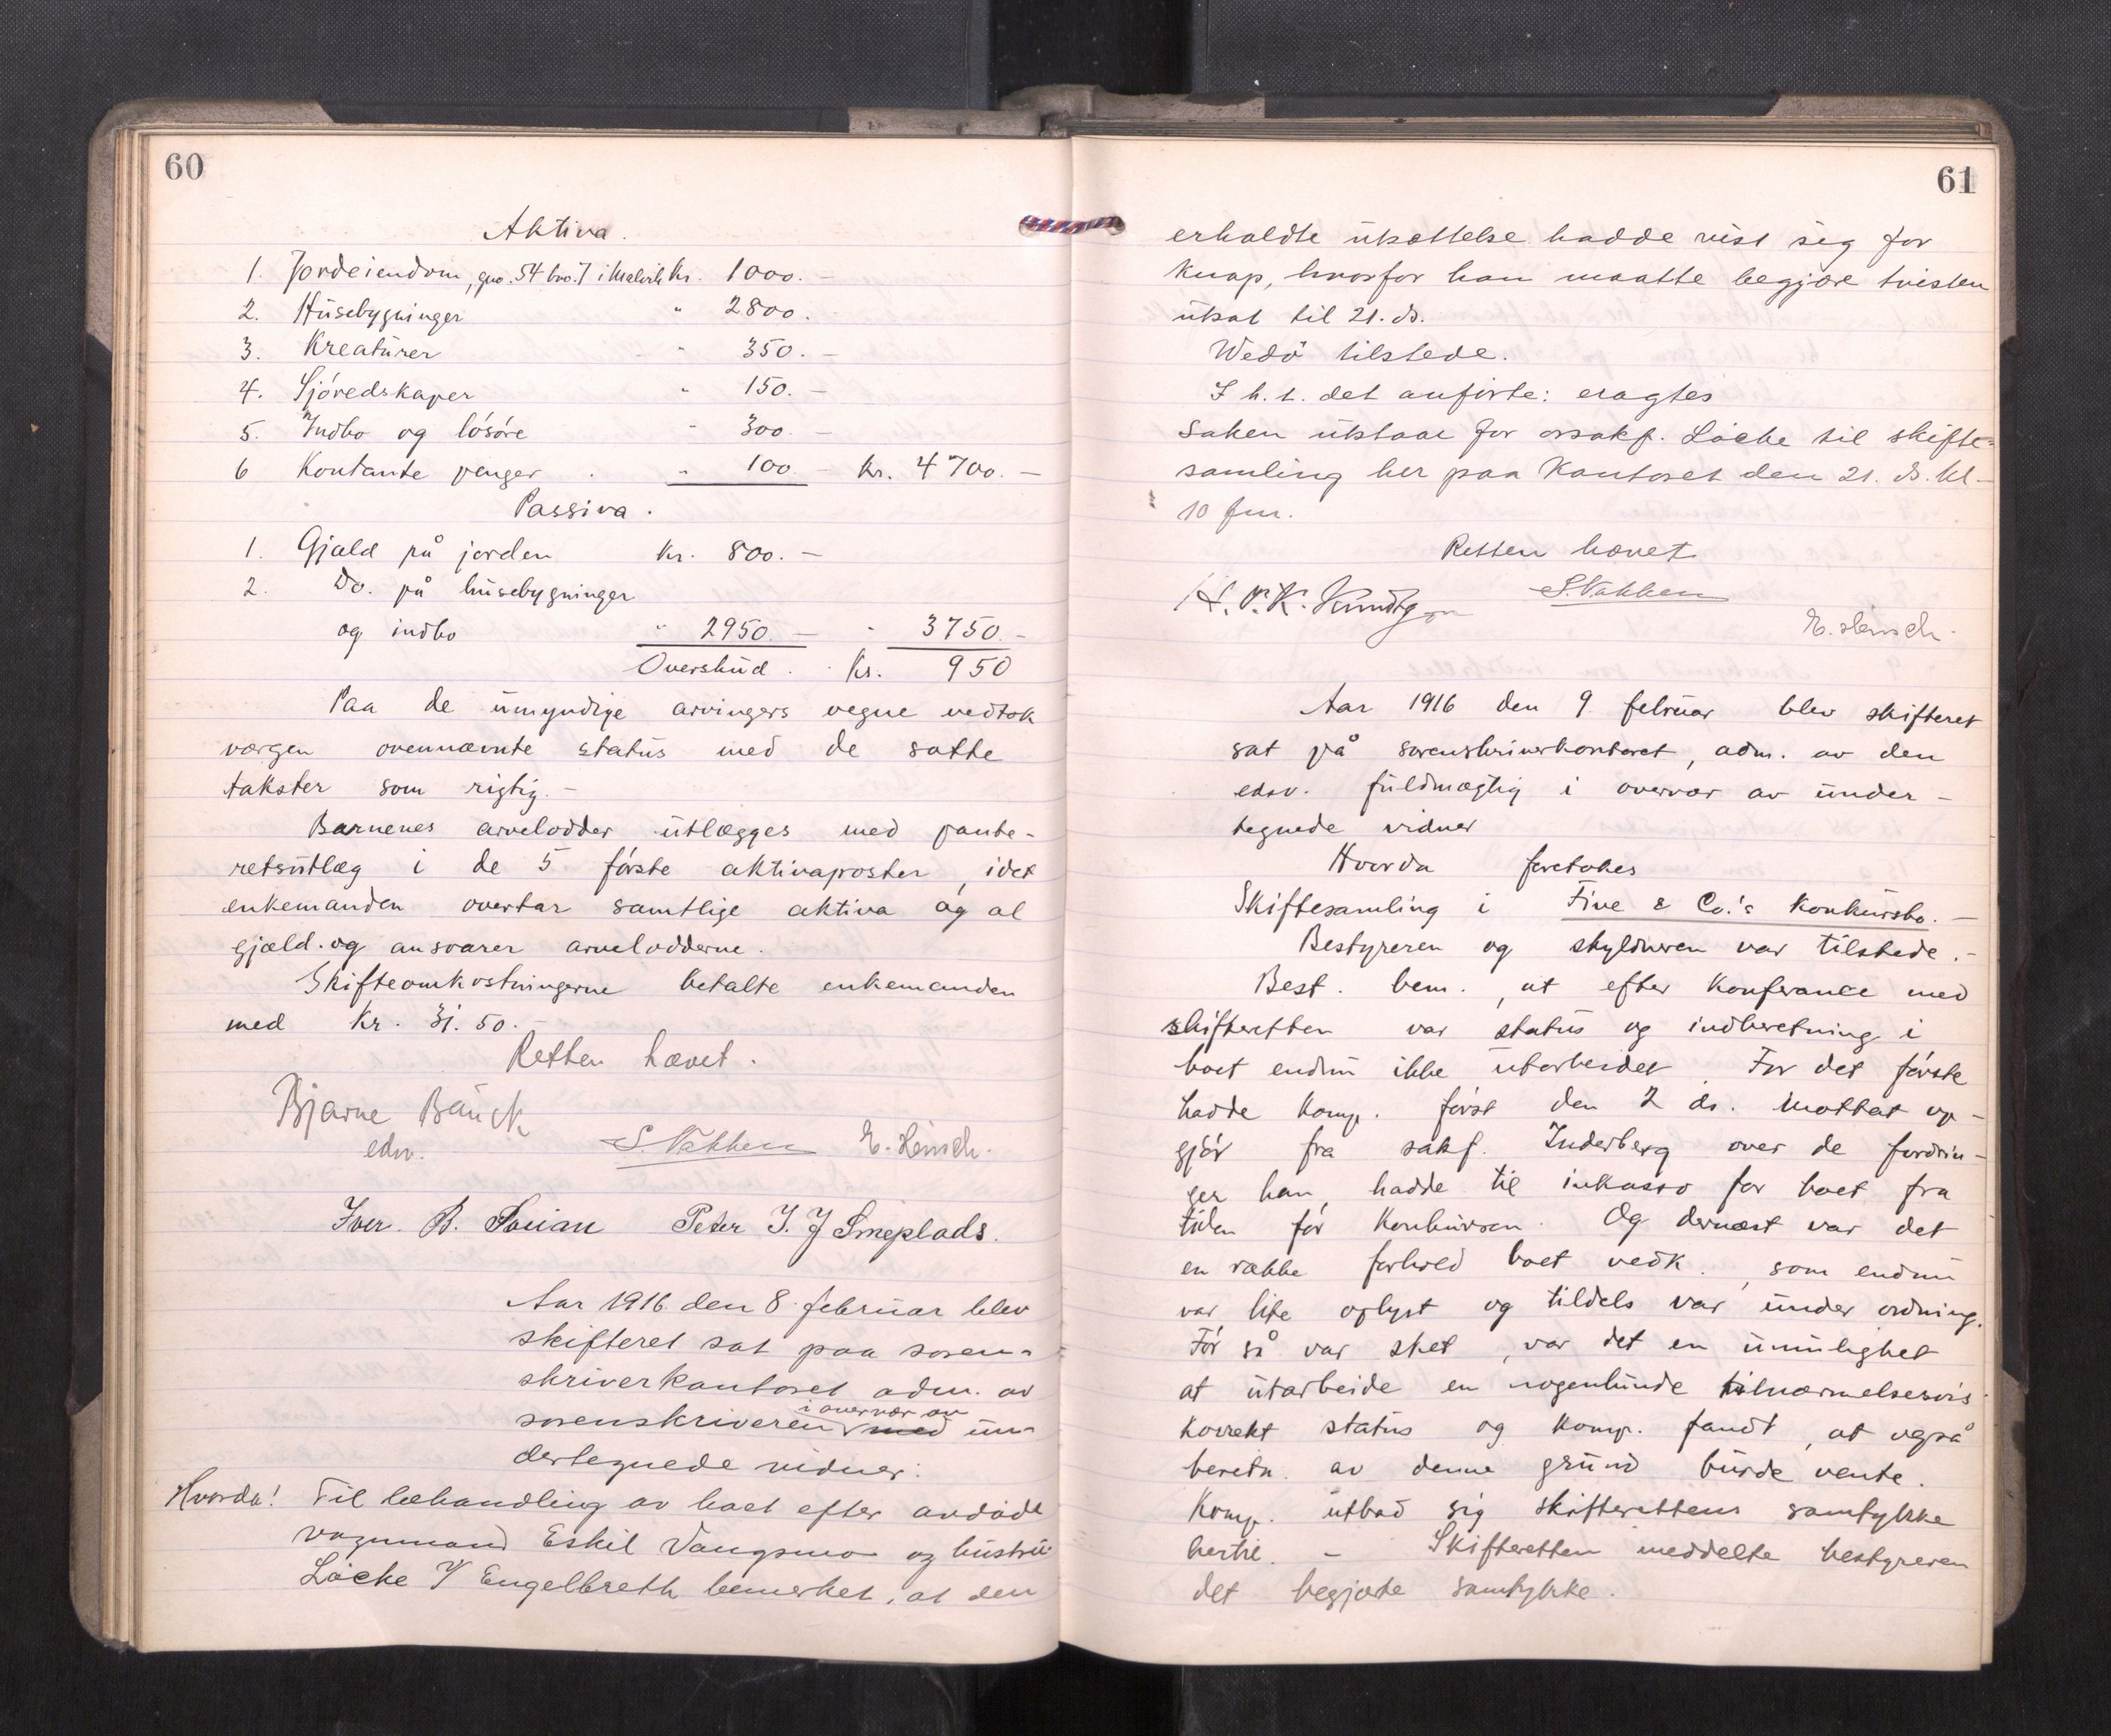 60
Aktiva.
1. Jordeiendom, gno. 54 bno. 7 i Malvik kr. 1000. –
2. Husebygninger " 2800.
3. Kreaturer " 350. –
4. Sjøredskaper " 150. –
5. Indbo og løsøre " 300. –
6 Kontante penger " 100. – kr. 4700. –
Passiva.
1. Gjæld på jorden kr. 800. –
2. Do. på husebygninger
og indbo " 2950. – " 3750. –
Overskud. kr. 950
Paa de umyndige arvingers vegne vedtok
værgen ovennævnte status med de satte
takster som rigtig. –
Barnenes arvelodder utlægges med pante-
retsutlæg i de 5 første aktivaposter, idet
enkemanden overtar samtlige aktiva og al
gjæld og ansvarer arvelodderne.
Skifteomkostningerne betalte enkemanden
med kr. 31.50. –
Retten hævet.
Bjarne Bauck
edsv. S. Vakken E. Hensch.
Iver. B. Peter I. J Smeplads.
Aar 1916 den 8 februar blev
skifteret sat paa soren-
skriverkontoret adm. av
i overvær av
sorenskriveren med un-
dertegnede vidner:
Hvorda! Til behandling av boet efter avdøde
Eskil Vangsmo og hustru
Løcke v/ Engelbreth bemerket, at den
61
erholdte utsættelse hadde vist sig for
knap, hvorfor han maatte begjære tvisten
utsat til 21. ds.
Wedø tilstede.
I h. t. det anførte: eragtes
Saken utstaar for orsakf. Løcke til skifte-
samling her paa Kontoret den 21. ds. kl.
10 fm.
Retten hævet
S. Vakken
E. Hensch.
Aar 1916 den 9 februar blev skifteret
sat på sorenskriverkontoret, adm. av den
edsv. fuldmægtig i overvær av under-
tegnede vidner
Hvorda foretokes
Skiftesamling i Fine & Co.'s Konkursbo. –
Bestyreren og skyldneren var tilstede. –
Best. bem., at efter Konferance med
skifteretten var status og indberetning i
boet endnu ikke utarbeidet. For det første
hadde komp. først den 2 ds. mottat op-
gjør fra sakf. Inderberg over de fordrin-
ger han hadde til inkasso for boet fra
tiden før Konkursen. Og dernæst var det
en række forhold boet vedk., som endnu
var lite oplyst og tildels var under ordning.
Før så var sket, var det en umulighet
at utarbeide en nogenlunde tilnærmelsesvis
korrekt status og Komp. fandt, at også
beretn. av denne grund burde vente.
Komp. utbad sig skifterettens samtykke
hertil. – Skifteretten meddelte bestyreren
det begjærte samtykke.